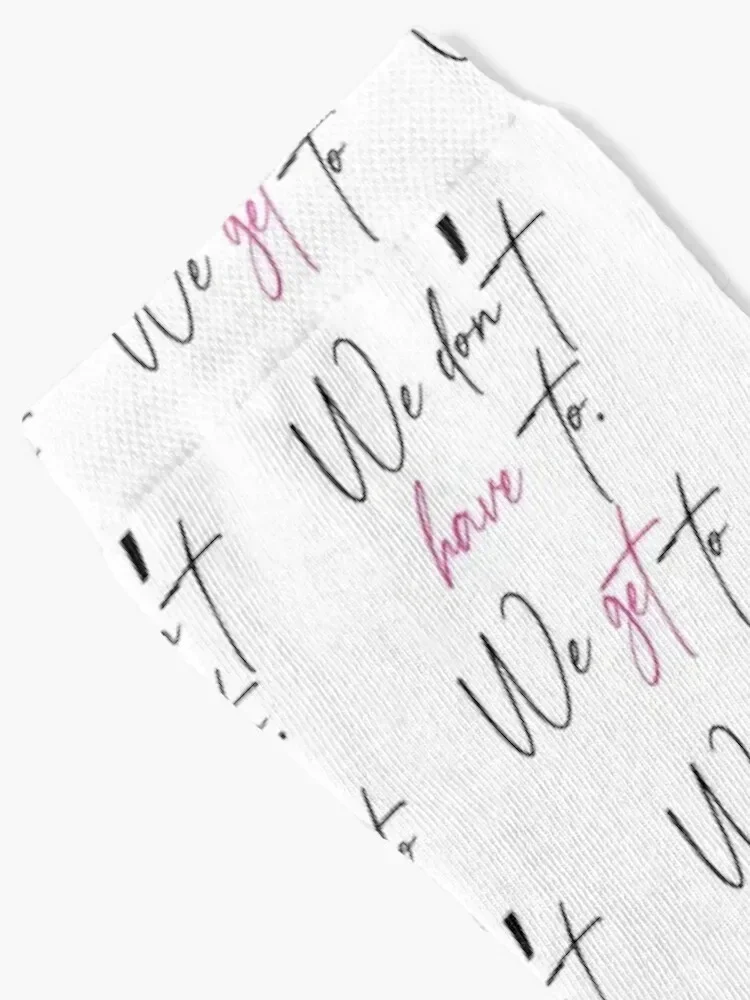 We get To
We don't
have to.
We get to
W
't
't